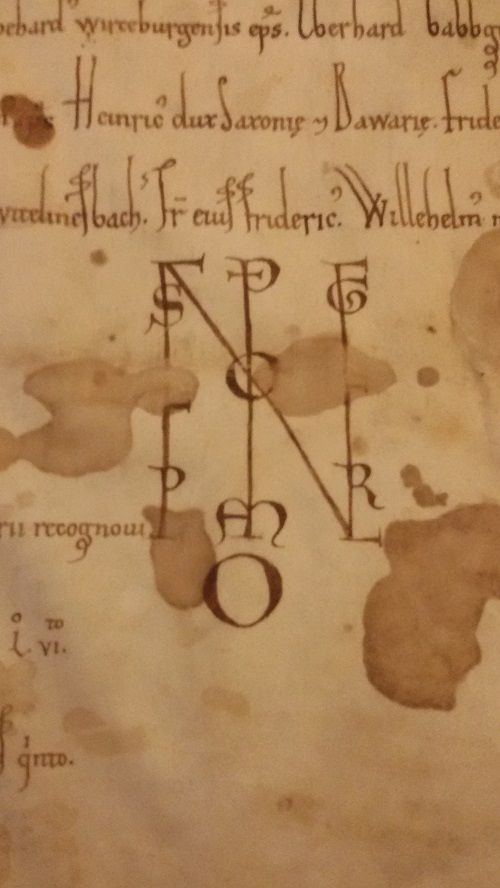 ebard wirceburgensis eps. Eberhard babbg
Heinric dux Saxonię ⁊ Bawarię. fride
witelinesbach. Fr eius fridericꝰ. Willehelmꝰ
S P G
C
P M R
O
rii recognovi.
L. VI.
qnto.